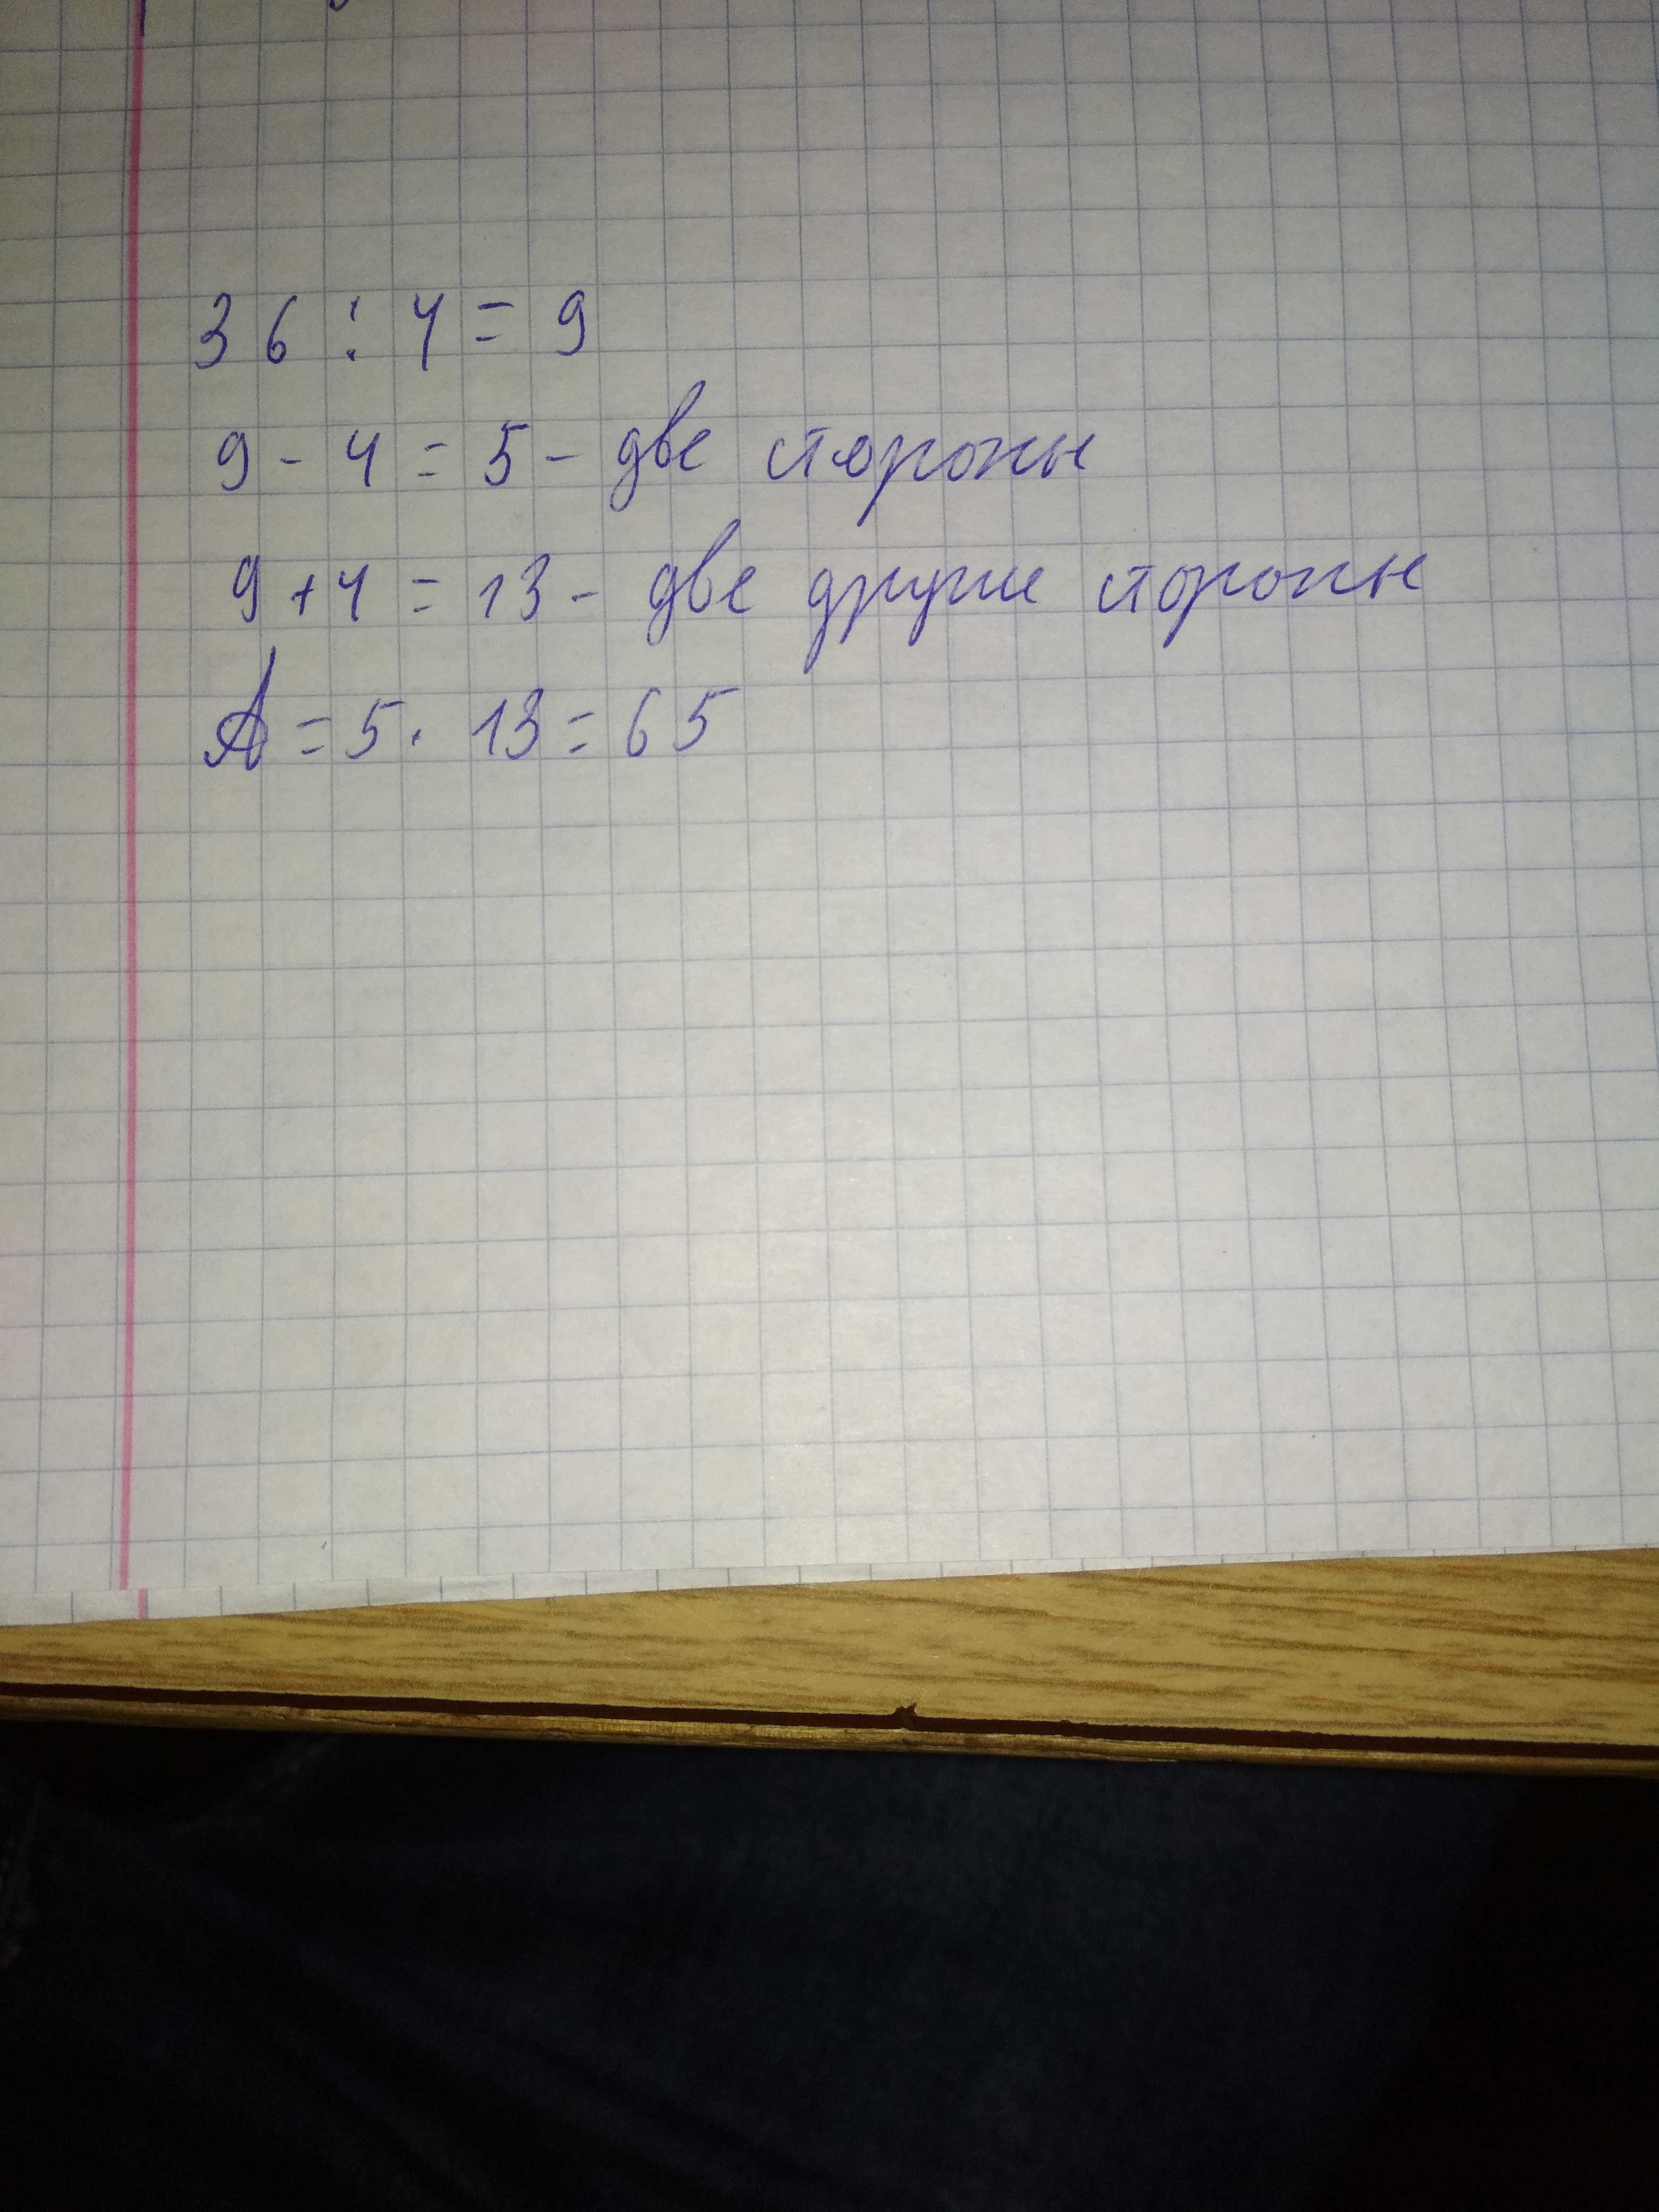 36 : 4 = 9
9 - 4 = 5 - две стороны
9 + 4 = 13 - две другие стороны
A = 5 · 13 = 65